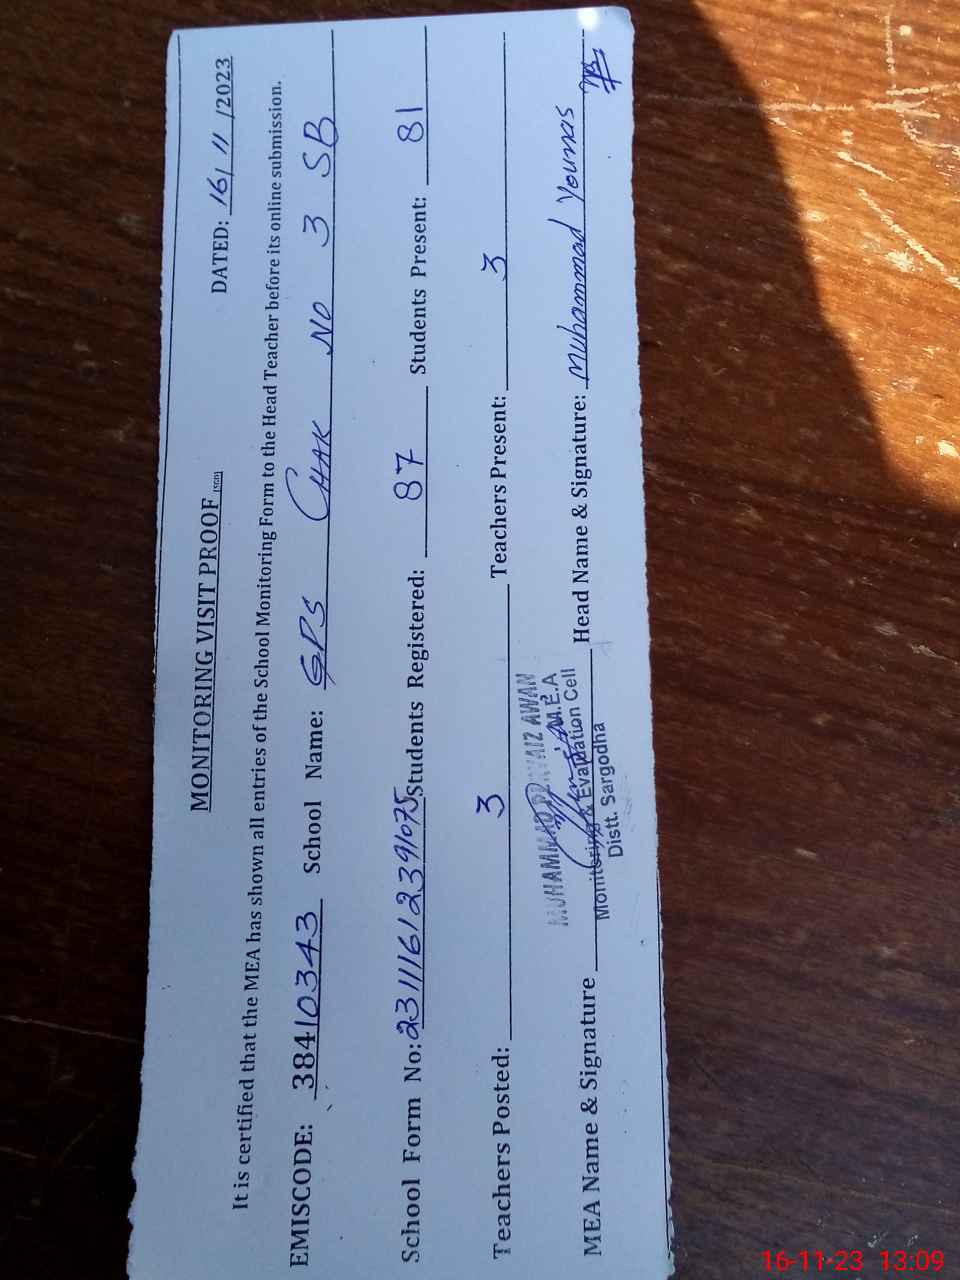 MONITORING VISIT PROOF (SGD)
DATED: 16/ 11 /2023
It is certified that the MEA has shown all entries of the School Monitoring Form to the Head Teacher before its online submission.
EMISCODE: 38410343 School Name: GPS CHAK NO 3 SB
School Form No: 23111612391075 Students Registered: 87 Students Present: 81
Teachers Posted: 3 Teachers Present: 3
MUHAMMAD PERVAIZ AWAN
M.E.A
Monitoring & Evaluation Cell
Distt. Sargodha
MEA Name & Signature Head Name & Signature: Muhammad Younas
16-11-23 13:09